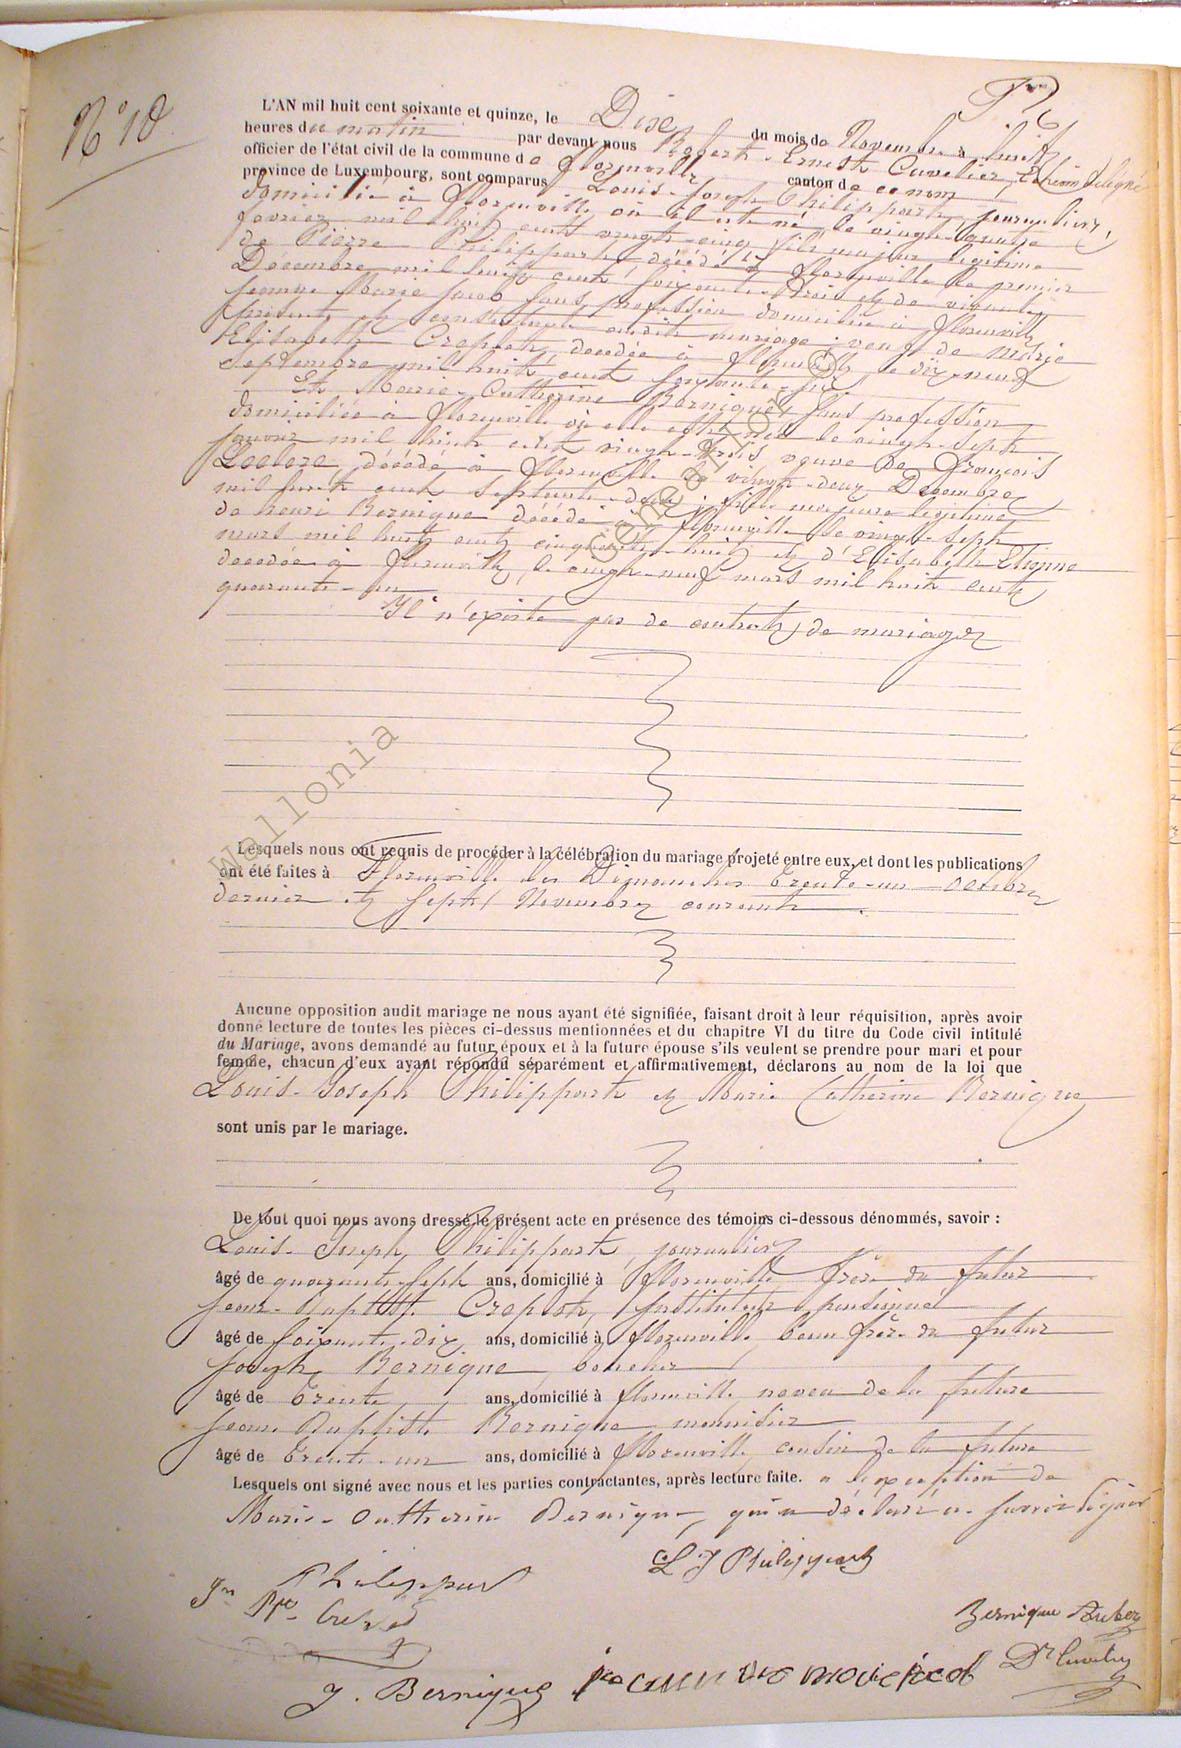 N° 18
L'AN mil huit cent soixante et quinze, le Dix du mois de Novembre à huit
heures du matin par devant nous Robert Ernest Cuvelier, Echevin délégué
officier de l'état civil de la commune de Florenville canton de ce nom
province de Luxembourg, sont comparus Louis-Joseph Philippart, journalier,
domicilié à Florenville où il est né le vingt-quinze
février mil huit cent vingt-cinq fils majeur légitime
de Pierre Philippart, décédé à Florenville le premier
Décembre mil huit cent soixante-trois et de
Jeanne Marie Jacob sans profession domiciliée à Florenville
présente et consentante audit mariage; veuf de Marie
Elisabeth Croplet, décédée à Florenville le dix-neuf
Septembre mil huit cent soixante-six
Et Marie-Catherine Bernique, sans profession
domiciliée à Florenville où elle est née le vingt-sept
janvier mil huit cent vingt-trois veuve de François
Leclere, décédé à Florenville le vingt-deux Décembre
mil huit cent septante-deux; fille majeure légitime
de henri Bernique décédé à Florenville le vingt-sept
mars mil huit cent cinquante-huit et d'Elisabeth Etienne
décédée à Florenville, le vingt-neuf mars mil huit cent
quarante-un
Il n'existe pas de contrat de mariage
Lesquels nous ont requis de procéder à la célébration du mariage projeté entre eux, et dont les publications
ont été faites à Florenville les Dimanches trente-un octobre
dernier et sept Novembre courant.
Aucune opposition audit mariage ne nous ayant été signifiée, faisant droit à leur réquisition, après avoir
donné lecture de toutes les pièces ci-dessus mentionnées et du chapitre VI du titre du Code civil intitulé
du Mariage, avons demandé au futur époux et à la future épouse s'ils veulent se prendre pour mari et pour
femme, chacun d'eux ayant répondu séparément et affirmativement, déclarons au nom de la loi que
Louis-Joseph Philippart et Marie Catherine Bernique
sont unis par le mariage.
De tout quoi nous avons dressé le présent acte en présence des témoins ci-dessous dénommés, savoir :
Louis-Joseph Philippart, journalier
âgé de quarante-sept ans, domicilié à Florenville frère du futur
Jean-Baptiste Croplet, Instituteur pensionné
âgé de soixante-dix ans, domicilié à Florenville, beau frère du futur
Joseph Bernique, boucher
âgé de trente ans, domicilié à Florenville, neveu de la future
Jean Baptiste Bernique menuisier
âgé de trente-un ans, domicilié à Florenville, cousin de la future
Lesquels ont signé avec nous et les parties contractantes, après lecture faite. à l'exception de
Marie-Catherine Bernique, qui a déclaré ne savoir signer
L J Philippart
Philippart
Jn Bte
Bernique
Dr Cuvelier
J. Bernique
Wallonia